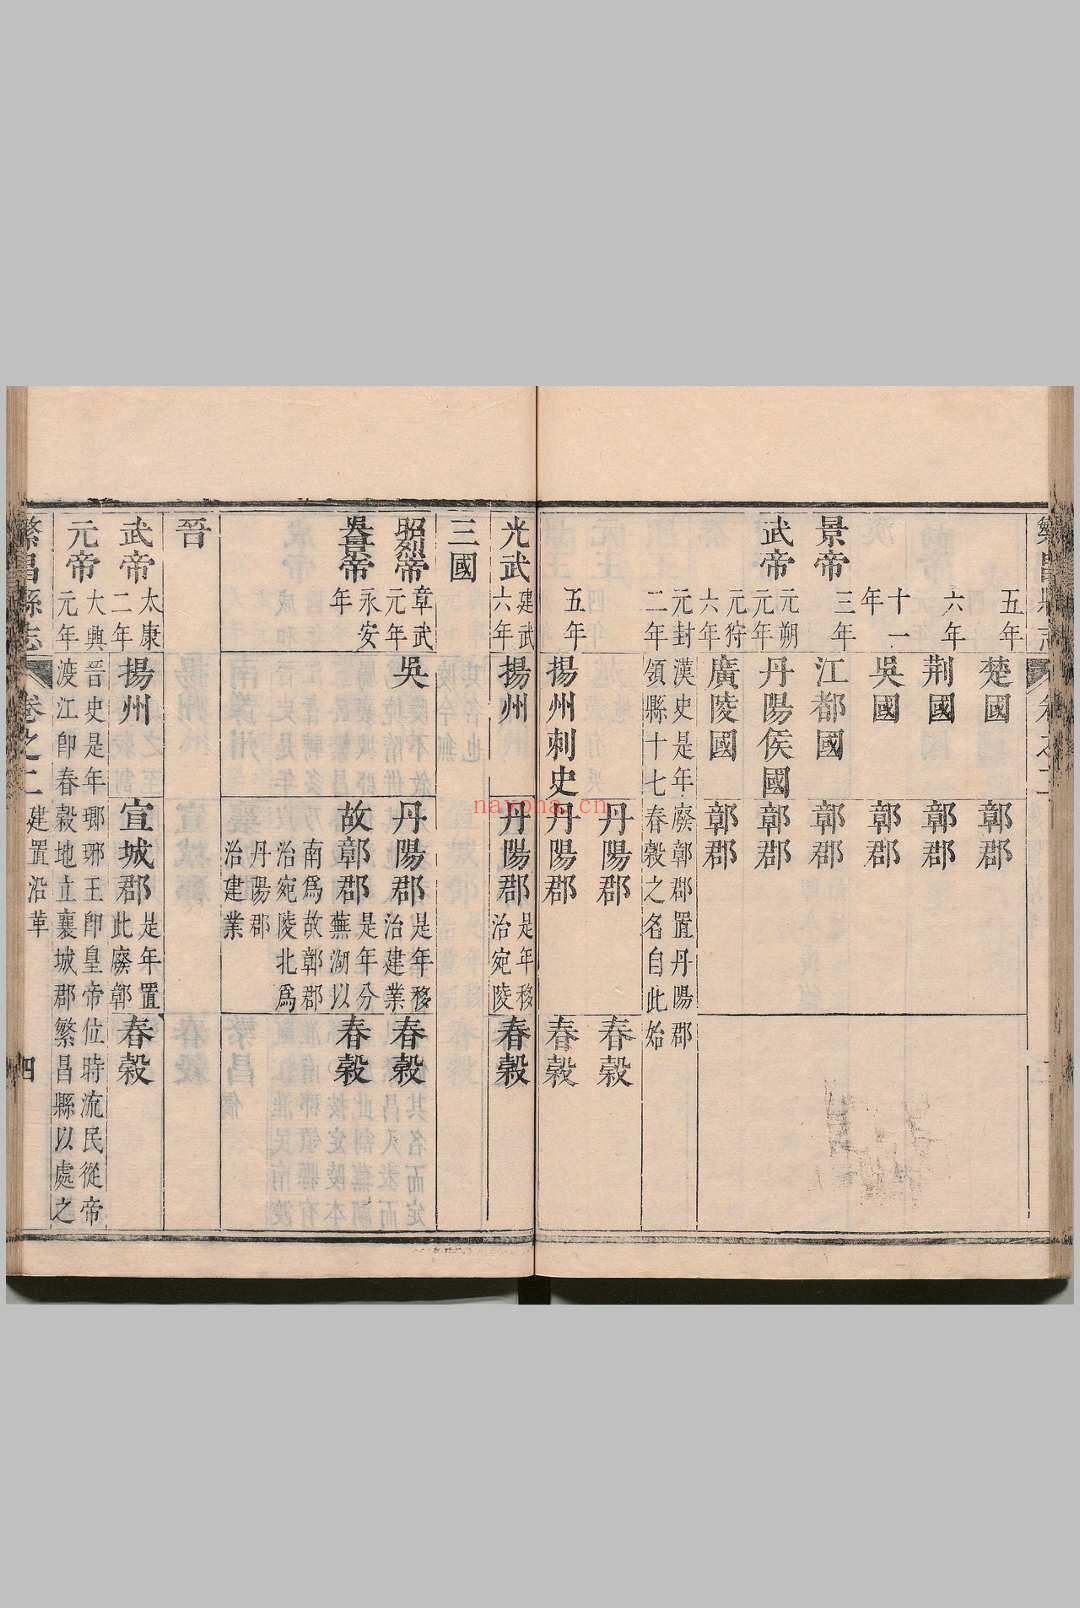 繁昌縣志 卷之二
五年 楚國 鄣郡
六年 荆國 鄣郡
十一年 吳國 鄣郡
景帝 三年 江都國 鄣郡
武帝 元朔元年 丹陽侯國 鄣郡
元狩六年 廣陵國 鄣郡
元封二年 漢史是年廢鄣郡置丹陽郡
領縣十七春穀之名自此始
丹陽郡 春穀
五年 揚州刺史 丹陽郡 春穀
光武 建武六年 揚州 丹陽郡 是年移治宛陵 春穀
三國
昭烈帝 章武元年 吳 丹陽郡 是年移治建業 春穀
吳景帝 永安年 故鄣郡 是年分蕪湖以南爲故鄣郡治宛陵北爲丹陽郡治建業 春穀
晉
武帝 太康二年 揚州 宣城郡 是年置此廢鄣 春穀
元帝 大興元年 晉史是年瑯琊王卽皇帝位時流民從帝
渡江卽春穀地立襄城郡繁昌縣以處之
繁昌縣志 卷之二 建置沿革 四
nayona.cn